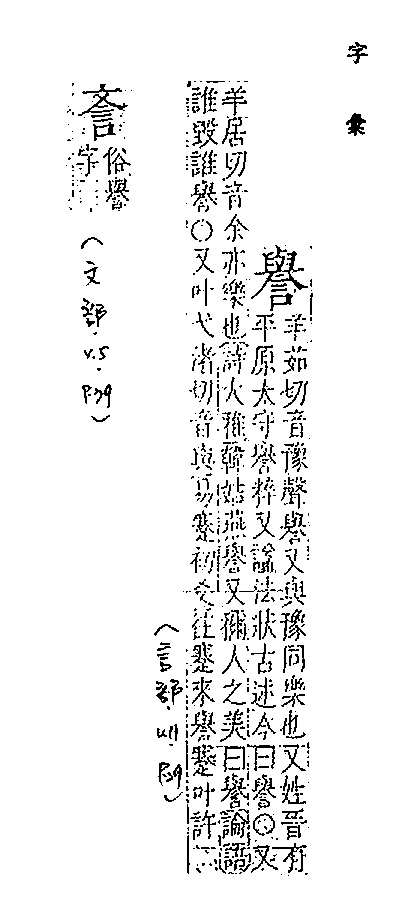 字彙
譽
羊茹切音豫聲譽又與豫同樂也又姓晉有
平原太守譽粹又諡法狀古述今曰譽○又
羊居切音余亦樂也詩大雅韓姞燕譽又稱人之美曰譽論語
誰毀誰譽○又叶弋渚切音與易蹇初爻往蹇來譽蹇叶許
(言部.
P.39)
𡥉俗譽
字
(文部.v.5.
P.39)